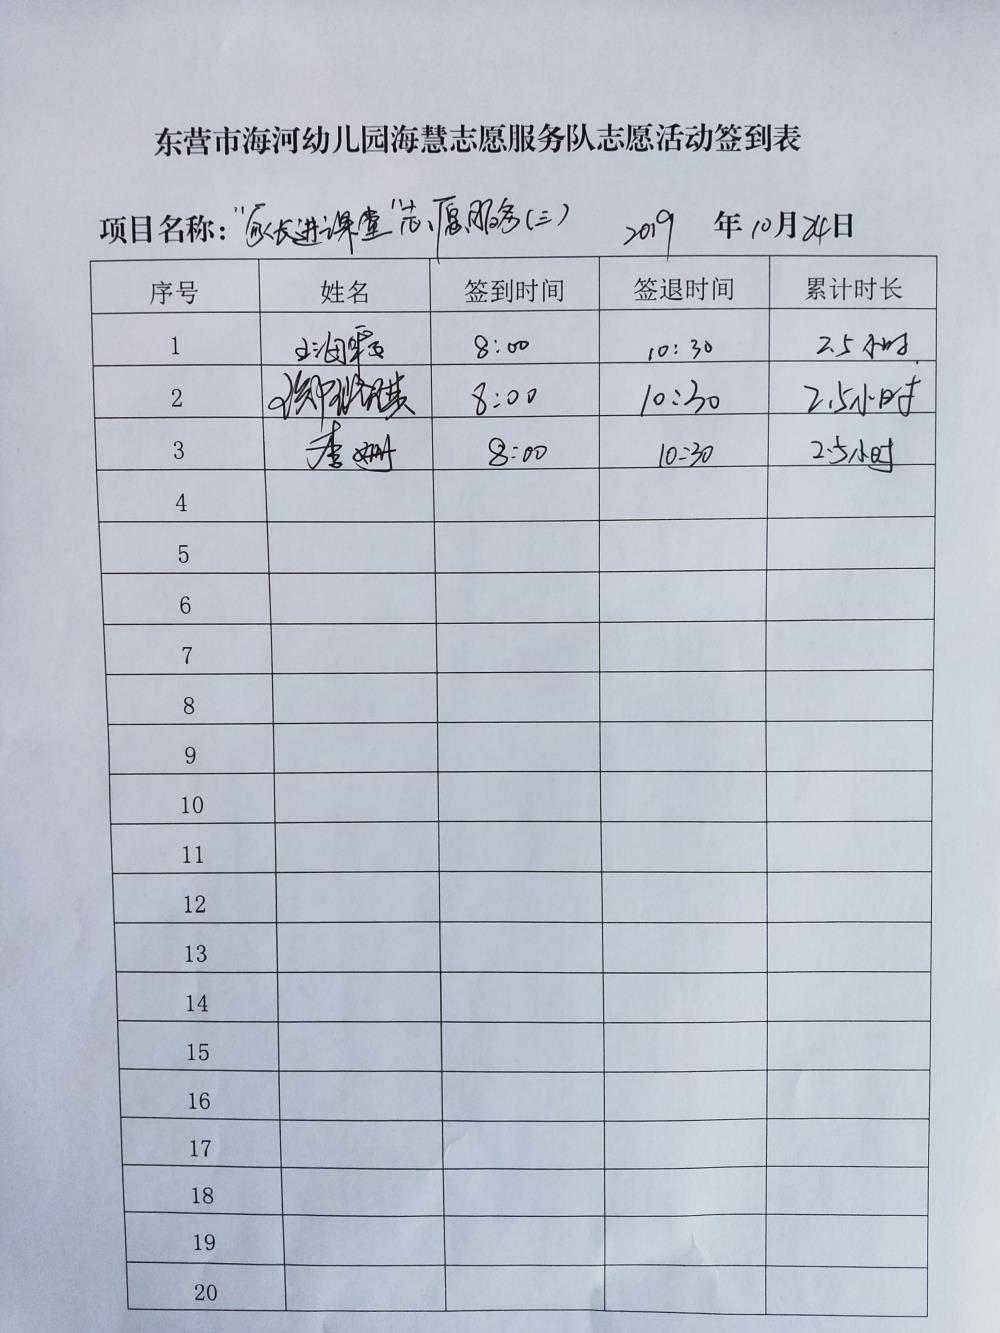 东营市海河幼儿园海慧志愿服务队志愿活动签到表
项目名称：“家长进课堂”志愿服务(三) 2019 年10月24日
序号 姓名 签到时间 签退时间 累计时长
1 王海霞 8:00 10:30 2.5小时
2 8:00 10:30 2.5小时
3 李姗 8:00 10:30 2.5小时
4
5
6
7
8
9
10
11
12
13
14
15
16
17
18
19
20